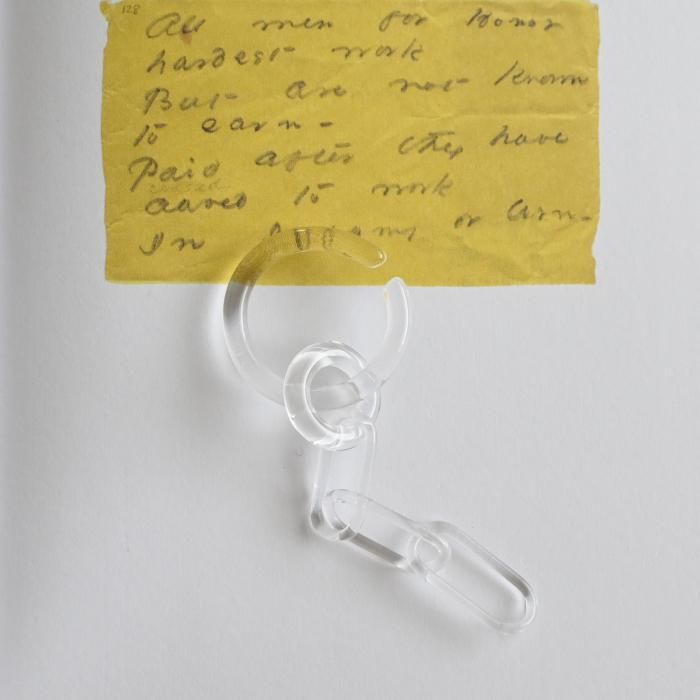 128
All men for Honor
hardest work
But are not known
To earn -
Paid after they have
to work
In or Earn -